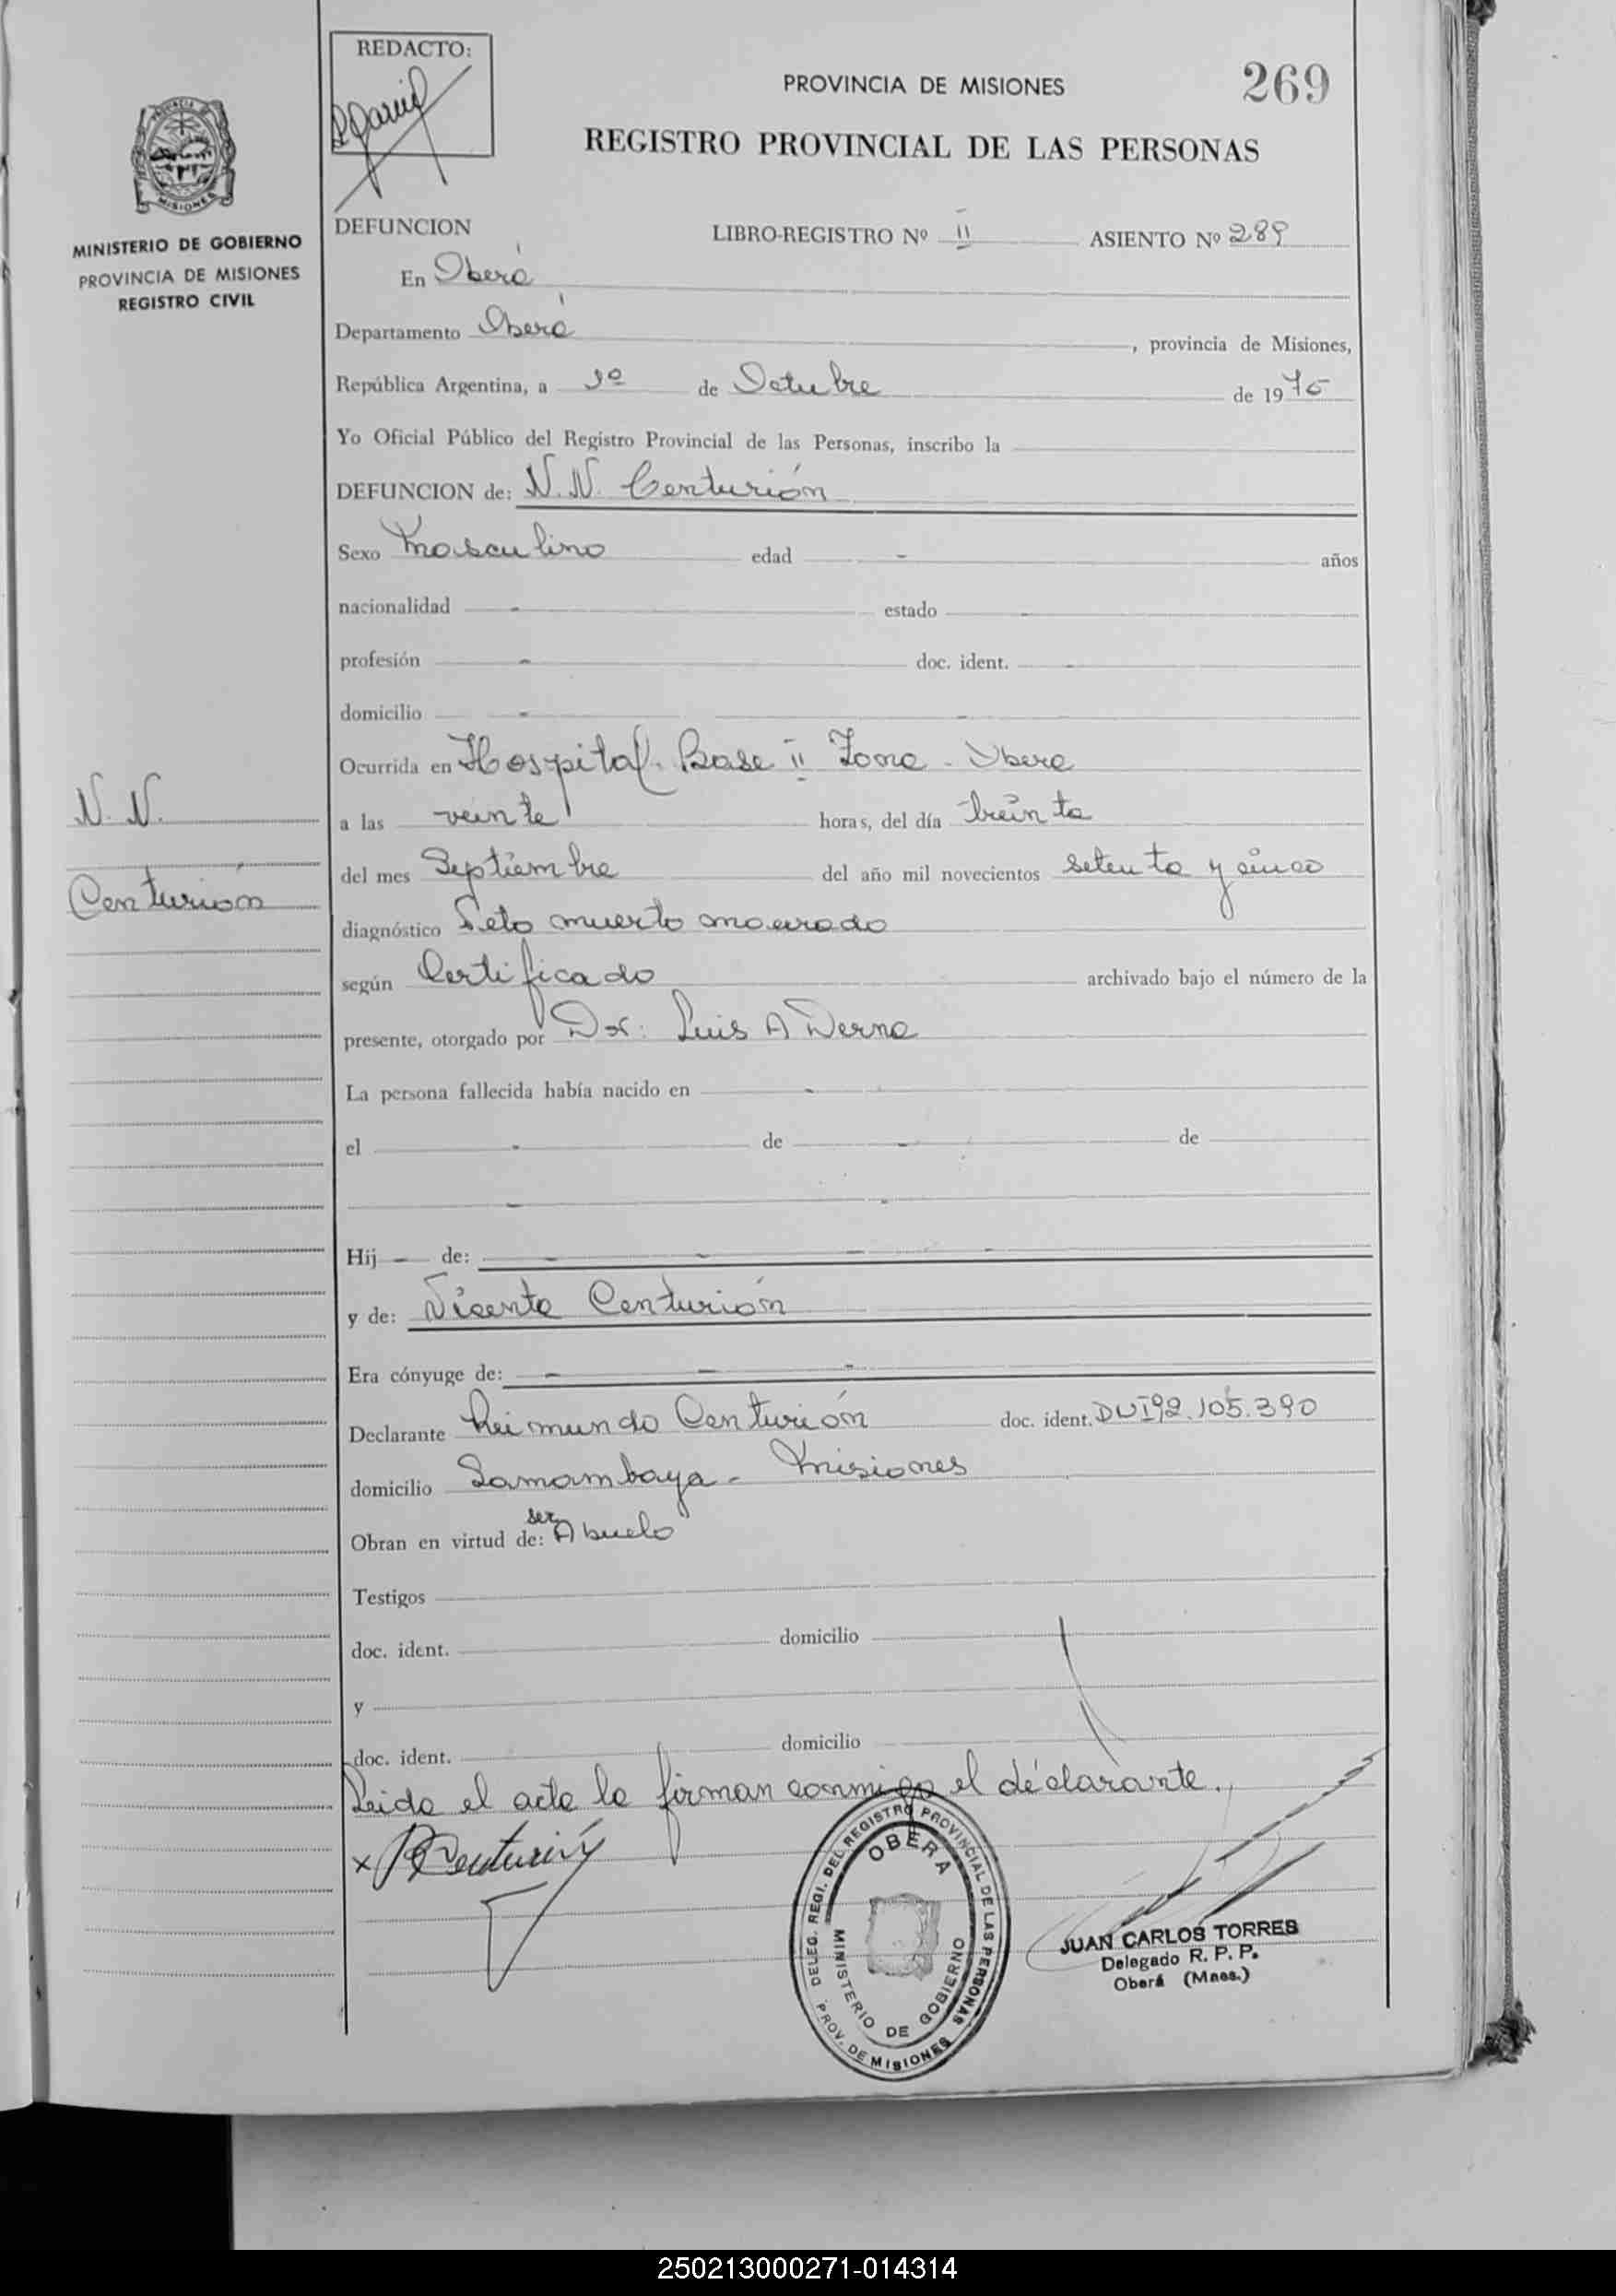 REDACTO:
PROVINCIA DE MISIONES
269
REGISTRO PROVINCIAL DE LAS PERSONAS
MISIONES
MINISTERIO DE GOBIERNO
PROVINCIA DE MISIONES
REGISTRO CIVIL
DEFUNCION LIBRO-REGISTRO Nº II ASIENTO Nº 289
En Oberá
Departamento Oberá, provincia de Misiones,
República Argentina, a 1º de Octubre de 1975
Yo Oficial Público del Registro Provincial de las Personas, inscribo la
DEFUNCION de: N.N. Centurión
Sexo Masculino edad - años
nacionalidad - estado -
profesión - doc. ident. -
domicilio - -
Ocurrida en Hospital Base II Zona - Obera
N. N.
a las veinte horas, del día treinta
del mes Septiembre del año mil novecientos setenta y cinco
Centurión
diagnóstico Feto muerto macerado
según Certificado archivado bajo el número de la
presente, otorgado por Dr: Luis A Derna
La persona fallecida había nacido en -
el - de - de
- -
Hij - de: - - - -
y de: Vicente Centurión
Era cónyuge de: - - -
Declarante Reimundo Centurión doc. ident. DUI 92.105.390
domicilio Samambaya - Misiones
Obran en virtud de: ser Abuelo
Testigos
doc. ident. domicilio
y
doc. ident. domicilio
Leida el acta la firman conmigo el declarante.
x R Centurión
DELEG. REGI. DEL REGISTRO PROVINCIAL DE LAS PERSONAS
OBERA
MINISTERIO DE GOBIERNO
PROV. DE MISIONES
JUAN CARLOS TORRES
Delegado R. P. P.
Oberá (Mnes.)
250213000271-014314